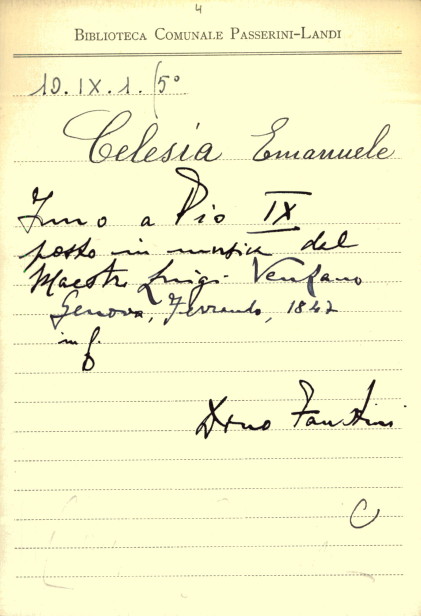 4
BIBLIOTECA COMUNALE PASSERINI-LANDI
10.IX.1.(5°
Celesia Emanuele
Inno a Pio IX
posto in musica dal
Maestro Luigi Venzano
Genova, Ferrando, 1847
in f.
Dono Faustini
C